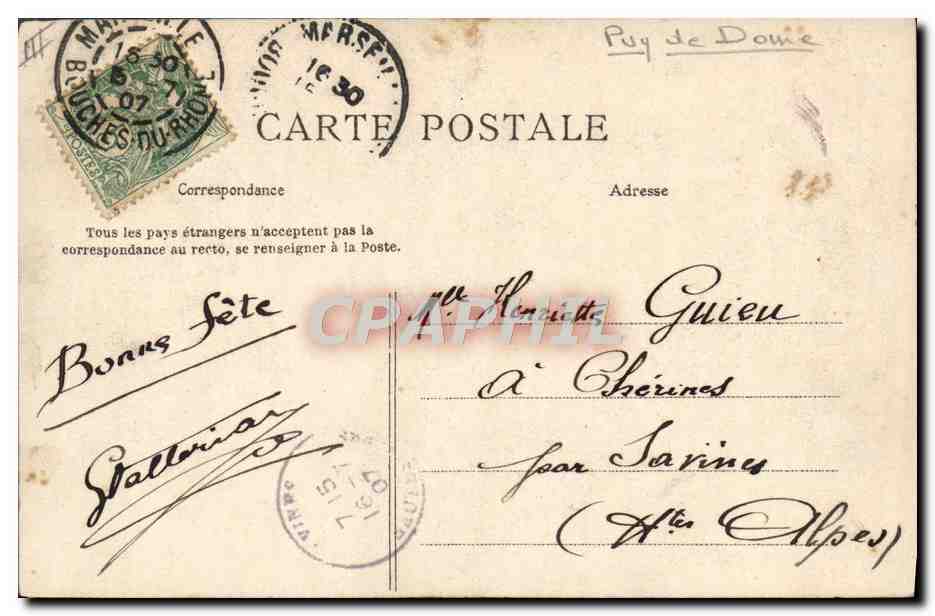 III
Puy de Dome
MARSEILLE
16 30
07
BOUCHES-DU-RHONE
MARSEILLE
16 30
POSTES
CARTE POSTALE
Correspondance
Adresse
Tous les pays étrangers n'acceptent pas la
correspondance au recto, se renseigner à la Poste.
CPAPHIL
Bonne fête
Mlle Henriette Guieu
à Chérines
par Savines
(Htes Alpes)
7
15
16
07